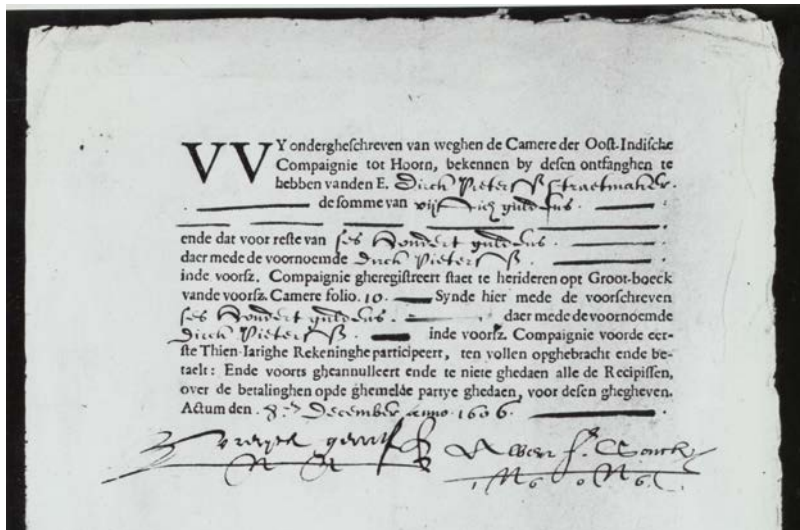 VVY ondergheschreven van weghen de Camere der Oost-Indische
Compaignie tot Hoorn, bekennen by desen ontfanghen te
hebben vanden E. Dirck Pietersz Straetmaker.
de somme van vijftich guldens.
ende dat voor reste van ses hondert guldens.
daer mede de voornoemde Dirck Pietersz.
inde voorsz. Compaignie gheregistreert staet te herideren opt Groot-boeck
vande voorsz. Camere folio. 10. Synde hier mede de voorschreven
ses hondert guldens. daer mede de voornoemde
Dirck Pietersz. inde voorsz. Compaignie voorde eer-
ste Thien-Iarighe Rekeninghe participeert, ten vollen opghebracht ende be-
taelt: Ende voorts gheannulleert ende te niete ghedaen alle de Recipissen,
over de betalinghen opde ghemelde partye ghedaen, voor desen ghegheven.
Actum den. December anno. 1606.